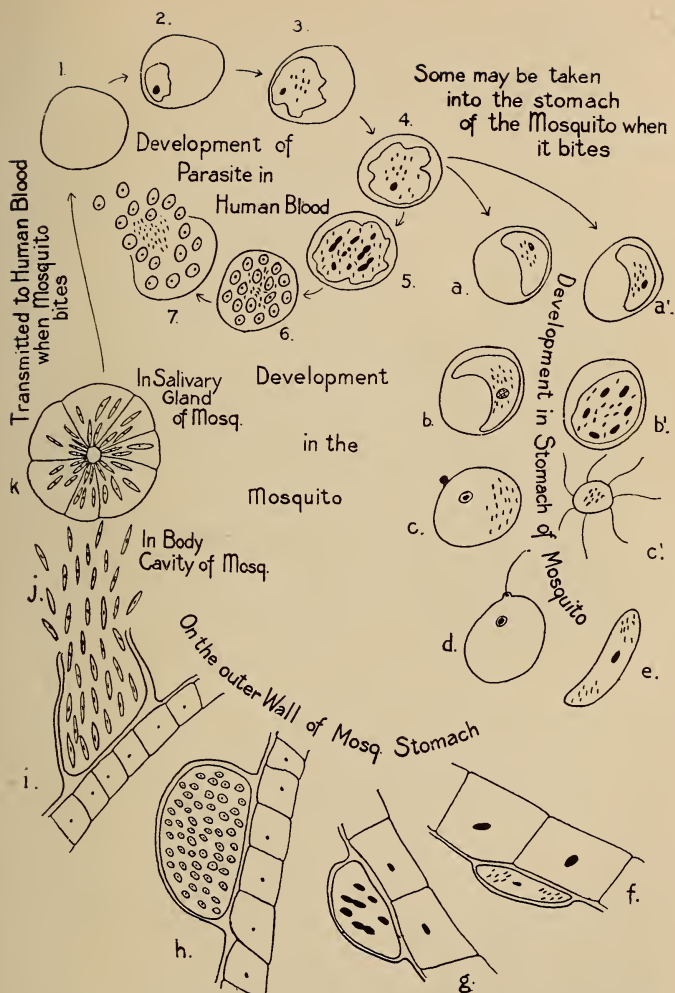 1.
2.
3.
4.
5.
6.
7.
Some may be taken
into the stomach
of the Mosquito when
it bites
Development of
Parasite in
Human Blood
Transmitted to Human Blood
when Mosquito
bites
a.
a'.
b.
b'.
c.
c'.
d.
e.
Development in Stomach of Mosquito
In Salivary
Gland
of Mosq.
Development
in the
Mosquito
k
In Body
Cavity of Mosq.
j.
On the outer Wall of Mosq. Stomach
i.
h.
g.
f.